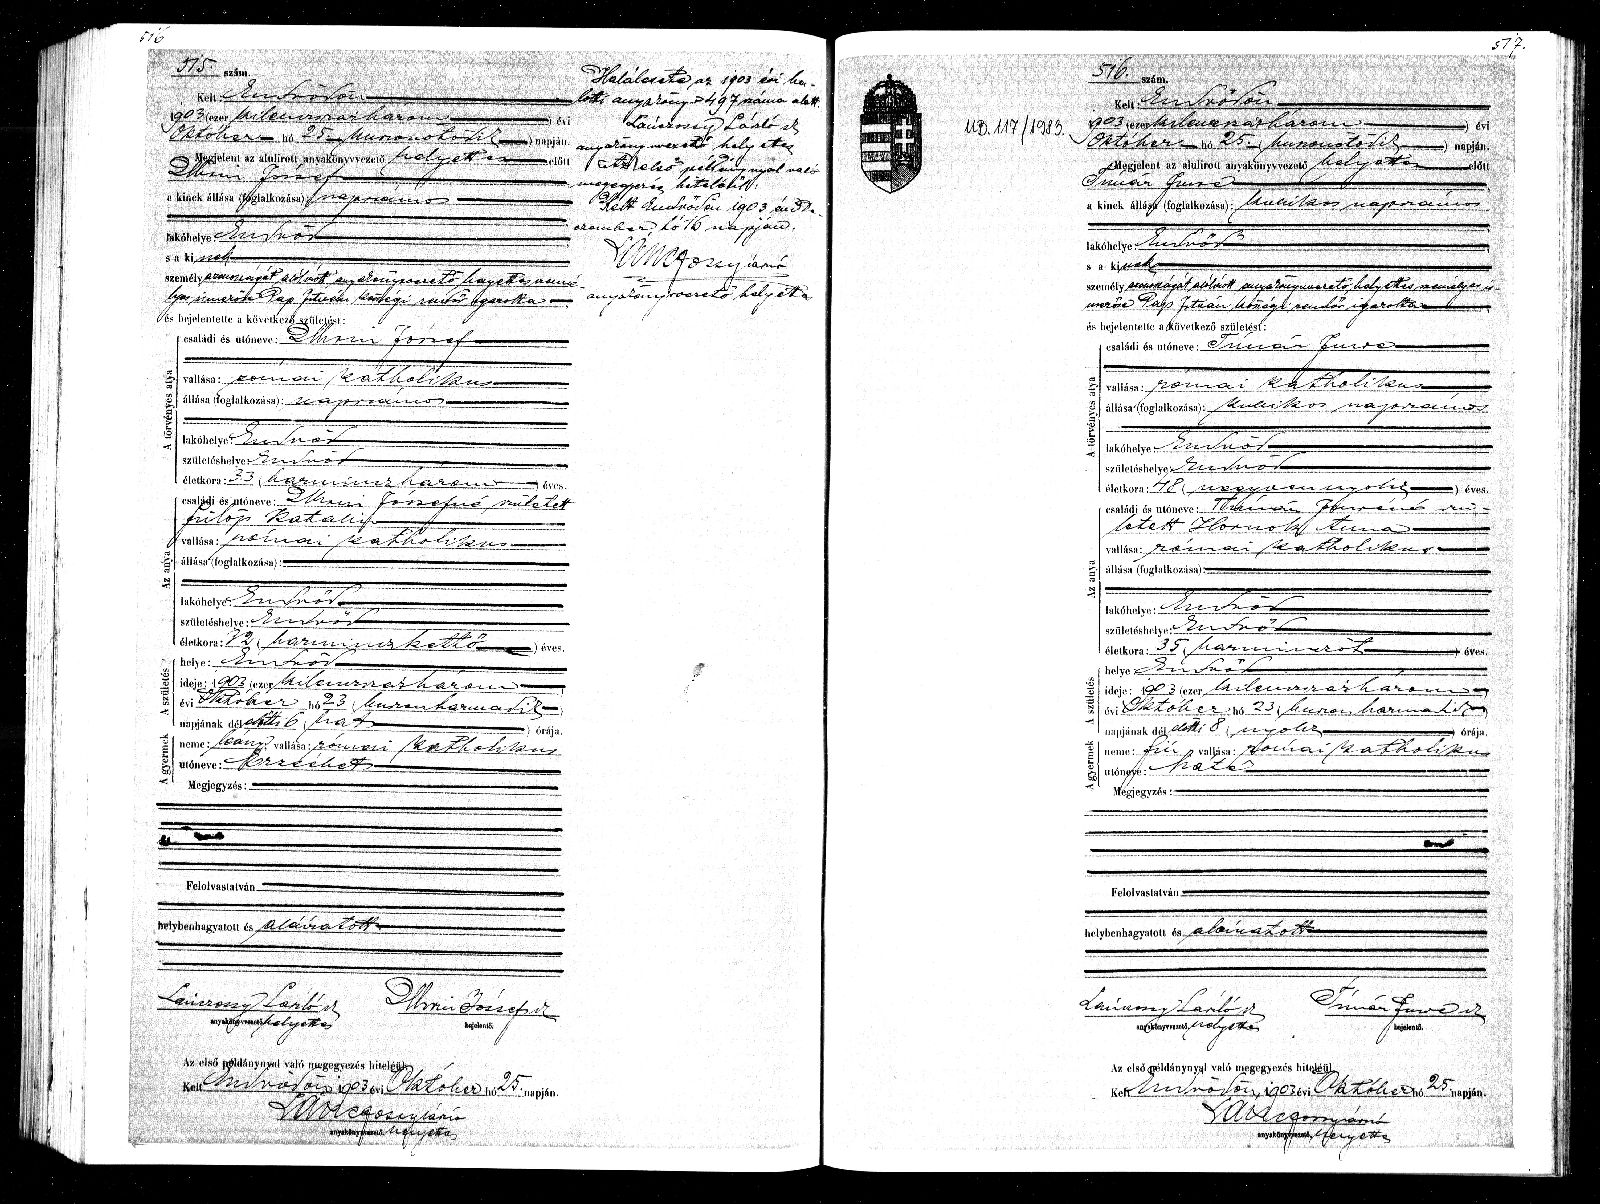 516
515. szám.
Kelt: Endrődön
1903 (ezer kilenczszázhárom) évi
Október hó 25 (huszonötödik) napján.
Megjelent az alulirott anyakönyvvezető helyettes előtt
József
a kinek állása (foglalkozása) napszámos
lakóhelye: Endrőd
s a ki nek
személyazonosságát alólirott anyakönyvvezető helyettes személyes
ismerőse Pap István községi rendőr igazolta
és bejelentette a következő születést:
A törvényes atya
családi és utóneve: József
vallása: római katholikus
állása (foglalkozása): napszámos
lakóhelye: Endrőd
születéshelye: Endrőd
életkora: 33 (harminczhárom) éves.
Az anya
családi és utóneve: Józsefné született
Fülöp Katalin
vallása: római katholikus
állása (foglalkozása):
lakóhelye: Endrőd
születéshelye: Endrőd
életkora: 32 (harminczkettő) éves.
A születés
helye: Endrőd
ideje: 1903 (ezer kilenczszázhárom)
évi Október hó 23 (huszonharmadik)
napjának dél előtti 6 (hat) órája.
A gyermek
neme: leány vallása: római katholikus
utóneve: Erzsébet
Megjegyzés:
Felolvastatván
helybenhagyatott és aláiratott
László sk
anyakönyvvezető helyettes
József sk
bejelentő.
Az első példánynyal való megegyezés hiteléül.
Kelt Endrődön, 1903 évi Október hó 25. napján.
anyakönyvvezető helyettes
Halálesete az 1903 évi ha-
lotti anyakönyv 497 száma alatt.
László sk
anyakönyvvezető helyettes
Az első példánynyal való
megegyezés hiteléül.
Kelt Endrődön 1903 évi De-
zember hó 16 napján.
anyakönyvvezető helyettes
517.
516. szám.
UD. 117/1983.
Kelt Endrődön
1903 (ezer kilenczszázhárom) évi
Október hó 25. (huszonötödik) napján.
Megjelent az alulirott anyakönyvvezető helyettes előtt
Tímár Imre
a kinek állása (foglalkozása): kubikos napszámos
lakóhelye: Endrőd
s a ki nek
személyazonosságát alólirott anyakönyvvezető helyettes személyes is-
merőse Pap István községi rendőr igazolta
és bejelentette a következő születést:
A törvényes atya
családi és utóneve: Tímár Imre
vallása: római katholikus
állása (foglalkozása): kubikos napszámos
lakóhelye: Endrőd
születéshelye: Endrőd
életkora: 48 (negyvennyolcz) éves.
Az anya
családi és utóneve: Tímár Imréné szü-
letett Hornok Anna
vallása: római katholikus
állása (foglalkozása):
lakóhelye: Endrőd
születéshelye: Endrőd
életkora: 35 (harminczöt) éves.
A születés
helye Endrőd
ideje: 1903 (ezer kilenczszázhárom)
évi Október hó 23 (huszonharmadik)
napjának dél előtti 8 (nyolcz) órája.
A gyermek
neme: fiú vallása: római katholikus
utóneve: Máté
Megjegyzés:
Felolvastatván
helybenhagyatott és aláiratott
László sk
anyakönyvvezető helyettes
Tímár Imre sk
bejelentő.
Az első példánynyal való megegyezés hiteléül
Kelt Endrődön, 1903 évi Október hó 25 napján.
anyakönyvvezető helyettes